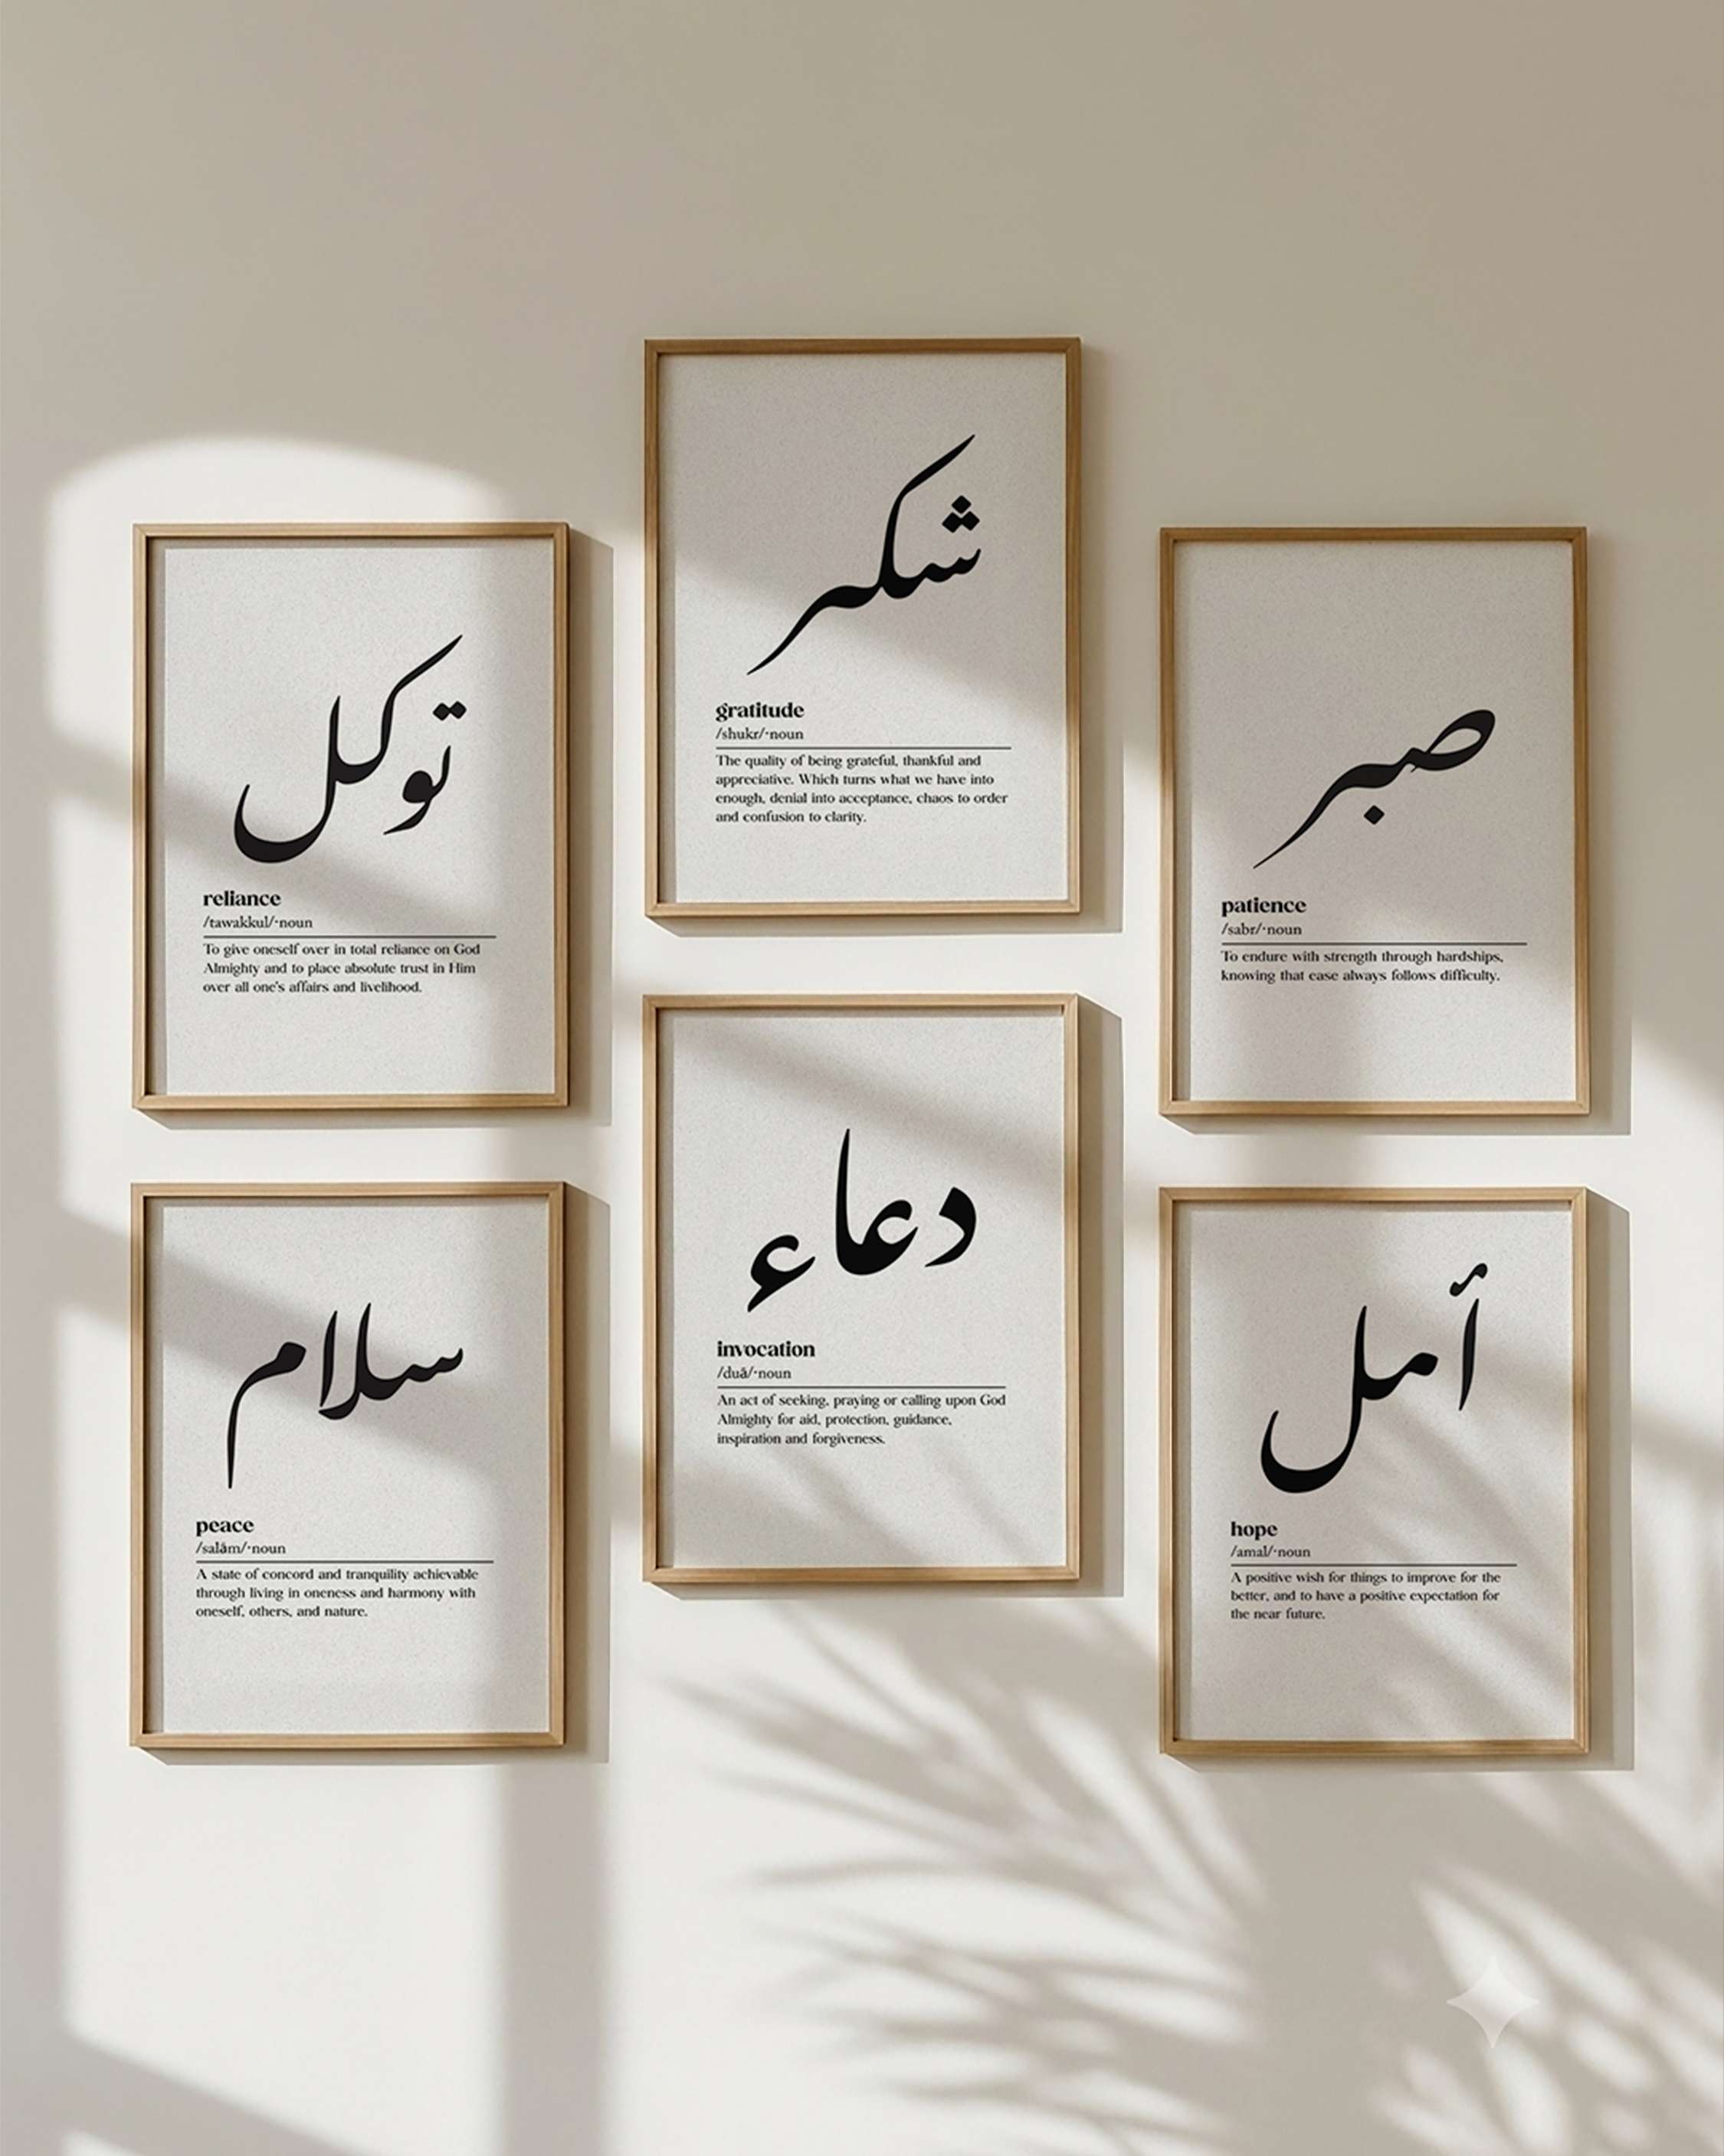 توكل
reliance
/tawakkul/·noun
To give oneself over in total reliance on God
Almighty and to place absolute trust in Him
over all one's affairs and livelihood.
شكر
gratitude
/shukr/·noun
The quality of being grateful, thankful and
appreciative. Which turns what we have into
enough, denial into acceptance, chaos to order
and confusion to clarity.
صبر
patience
/sabr/·noun
To endure with strength through hardships,
knowing that ease always follows difficulty.
سلام
peace
/salām/·noun
A state of concord and tranquility achievable
through living in oneness and harmony with
oneself, others, and nature.
دعاء
invocation
/duā/·noun
An act of seeking, praying or calling upon God
Almighty for aid, protection, guidance,
inspiration and forgiveness.
أمل
hope
/amal/·noun
A positive wish for things to improve for the
better, and to have a positive expectation for
the near future.